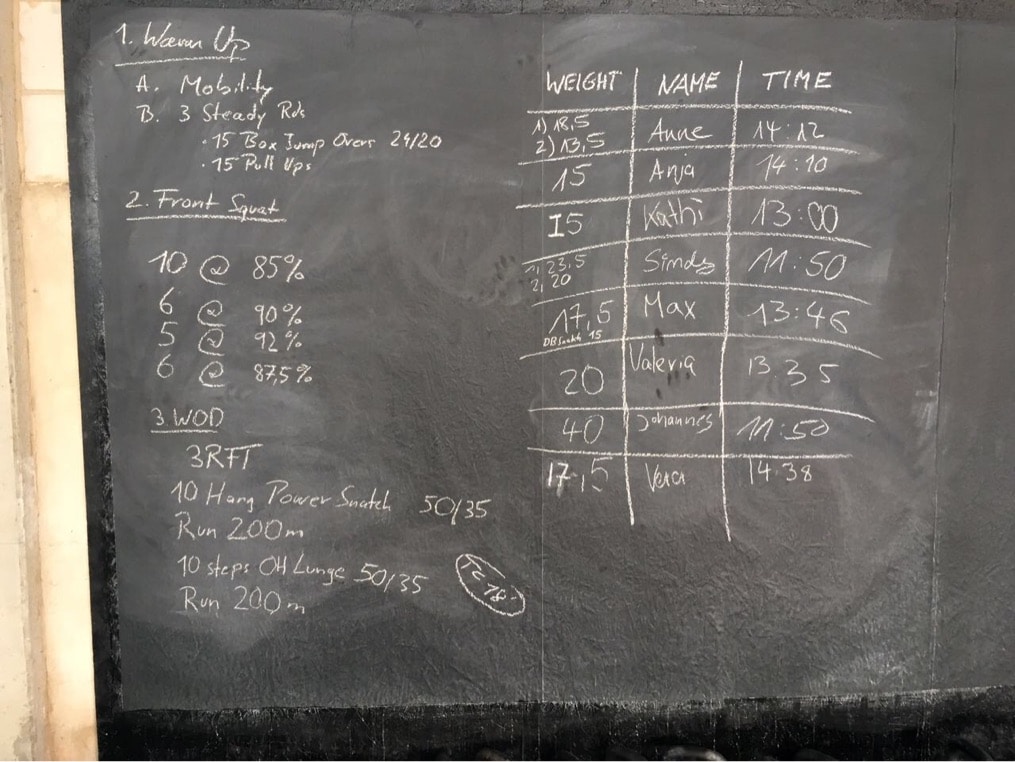 1. Warm Up
A. Mobility
B. 3 Steady Rds
· 15 Box Jump Overs 24/20
· 15 Pull Ups
2. Front Squat
10 @ 85%
6 @ 90%
5 @ 92%
6 @ 87,5%
3. WOD
3RFT
10 Hang Power Snatch 50/35
Run 200m
10 steps OH Lunge 50/35
Run 200m
TC 18'
WEIGHT NAME TIME
1) 18,5
2) 13,5 Anne 14:12
15 Anja 14:10
15 Kathi 13:00
1, 23,5
2, 20 11:50
17,5 Max 13:46
DB Snatch 15
20 Valeria 13 35
40 Johannes 11:50
17,5 Vera 14:38